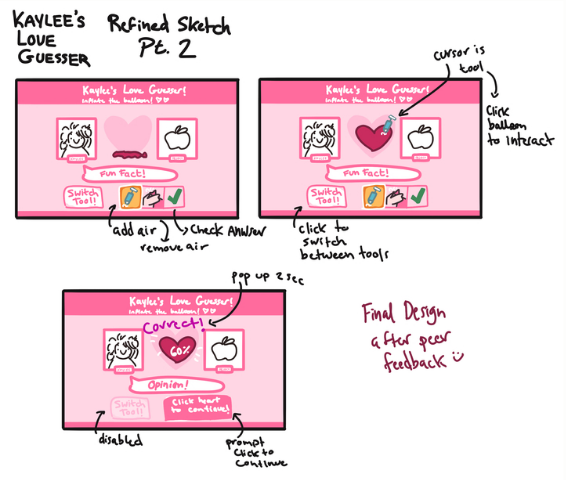 KAYLEE'S
LOVE
GUESSER
Refined Sketch
Pt. 2
Kaylee's Love Guesser!
Inflate the balloon! ♡♡
Fun Fact!
Switch
Tool!
add air
remove air
Check Answer
cursor is
tool
Click
balloon
to interact
Kaylee's Love Guesser!
Inflate the balloon! ♡♡
Fun Fact!
Switch
Tool!
Click to
switch
between tools
pop up 2 sec
Kaylee's Love Guesser!
Inflate the balloon! ♡♡
Correct!
60%
Opinion!
Switch
Tool!
Click heart
to continue!
disabled
prompt
click to
continue
Final Design
after peer
feedback